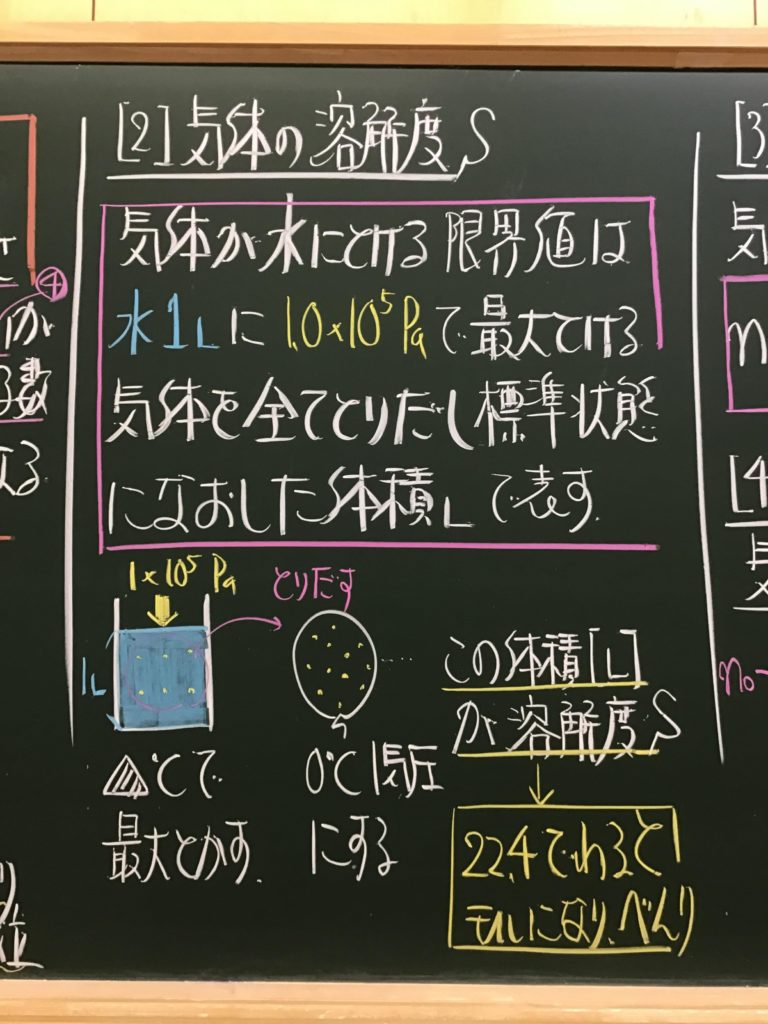 [2] 気体の溶解度S
気体が水にとける限界値は
水1Lに1.0×10⁵Paで最大とける
気体を全てとりだし標準状態
になおした体積Lで表す.
1×10⁵Pa
とりだす
1L
この体積[L]
が溶解度S
℃で
最大とかす.
0℃1気圧
にする
22.4でわると
モルになり、べんり
④
が
る
[3]
気
n
[4
n₀-